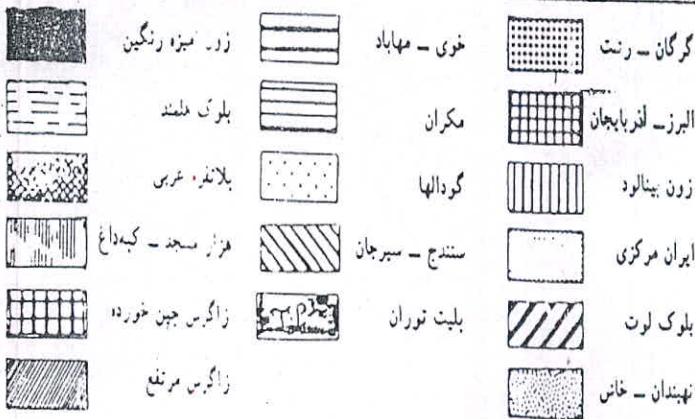 گرگان ــ رشت
البرز ــ آذربایجان
زون بینالود
ایران مرکزی
بلوک لوت
نهبندان ــ خاش
خوی ــ مهاباد
مکران
گودالها
سنندج ــ سیرجان
پلیت توران
زون آمیزه رنگین
بلوک هلمند
پلاتفرم عربی
هزار مسجد ــ کپه‌داغ
زاگرس چین خورده
زاگرس مرتفع